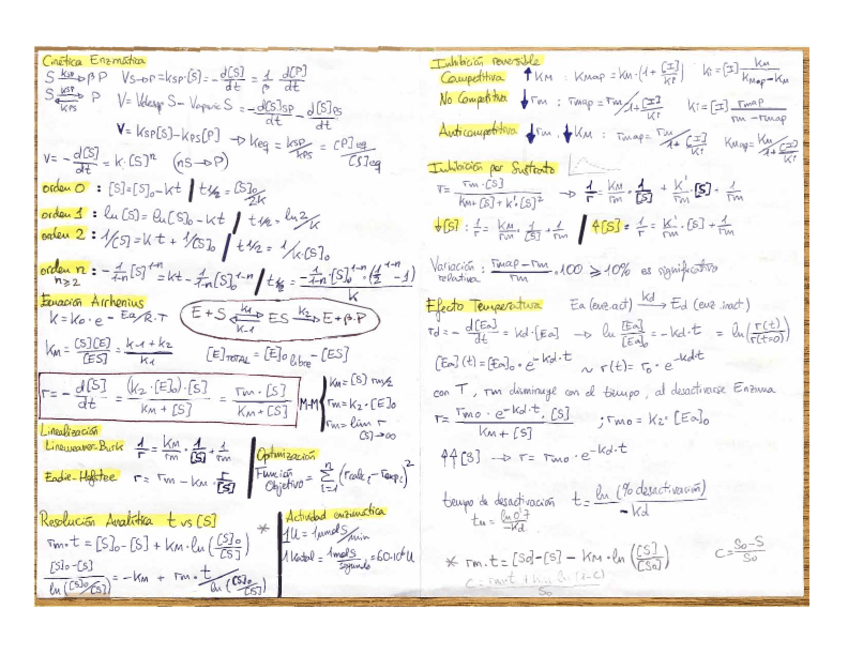 Cinética Enzimática
S ⟶(ksp) βP   V_S→P = ksp·[S] = -d[S]/dt = 1/β d[P]/dt
S ⇌(ksp/kps) P   V = Veloesp S - Vaparic S = -d[S]SP/dt - d[S]PS/dt
V = ksp[S]-kps[P] → Keq = ksp/kps = [P]eq/[S]eq
V = -d[S]/dt = k·[S]^n   (nS→P)
orden 0 : [S]=[S]₀-kt / t1/2 = [S]₀/2k
orden 1 : ln[S]=ln[S]₀-kt / t1/2 = ln2/k
orden 2 : 1/[S]=kt + 1/[S]₀ / t1/2 = 1/k·[S]₀
orden n n≥2 : -1/1-n [S]^1-n = kt - 1/1-n [S]₀^1-n / t1/2 = -1/1-n·[S]₀^1-n·(1/2^1-n - 1)/k
Ecuación Arrhenius
k = k₀·e^-Ea/R.T   E+S ⇌(k1/k-1) ES ⟶(k2) E+β·P
KM = [S][E]/[ES] = k-1+k2/k1   [E]TOTAL = [E]₀ libre - [ES]
r = -d[S]/dt = (k2·[E]₀)·[S]/KM+[S] = rm·[S]/KM+[S]   M-M
KM = [S] rm/2
rm = k2·[E]₀
rm = lim r [S]→∞
Linealización
Lineweaver-Burk 1/r = KM/rm·1/[S] + 1/rm
Eadie-Hofstee r = rm - KM·r/[S]
Optimización
Función Objetivo = Σ(i=1, n) (rcalc i - rexp i)²
Resolución Analítica t vs [S] *
rm·t = [S]₀-[S] + KM·ln([S]₀/[S])
[S]₀-[S]/ln([S]₀/[S]) = -KM + rm·t/ln([S]₀/[S])
Actividad enzimática
1U = 1μmol S/min
1 Katal = 1mol S/segundo = 60·10⁶U
Inhibición reversible
Competitiva ↑KM : KMap = KM·(1+[I]/Ki)   Ki=[I] KM/KMap-KM
No Competitiva ↓rm : rmap = rm/1+[I]/Ki   Ki=[I] rmap/rm-rmap
Anticompetitiva ↓rm, ↓KM : rmap = rm/1+[I]/Ki   KMap = KM/1+[I]/Ki
Inhibición por Sustrato
r = rm·[S]/KM+[S]+K'·[S]² → 1/r = KM/rm·1/[S] + K'/rm·[S] + 1/rm
↓[S] : 1/r = KM/rm·1/[S] + 1/rm / ↑[S] : 1/r = K'/rm·[S] + 1/rm
Variación relativa : rmap-rm/rm ·100 ≥10% es significativo
Efecto Temperatura   Ea (enz.act) ⟶(kd) Ed (enz inact)
rd = -d[Ea]/dt = kd·[Ea] → ln [Ea]/[Ea]₀ = -kd·t = ln(r(t)/r(t=0))
[Ea](t)=[Ea]₀·e^-kd·t ~ r(t)= r₀·e^-kdt
con T, rm disminuye con el tiempo, al desactivarse Enzima
r = rm₀·e^-kd·t·[S]/KM+[S]   ; rm₀ = k2·[Ea]₀
↑↑[S] → r = rm₀·e^-kd·t
tiempo de desactivación t = ln(% desactivación)/-kd
ln0'7/-kd
* rm·t = [S₀]-[S] - KM·ln([S]/[S₀])   C = S₀-S/S₀